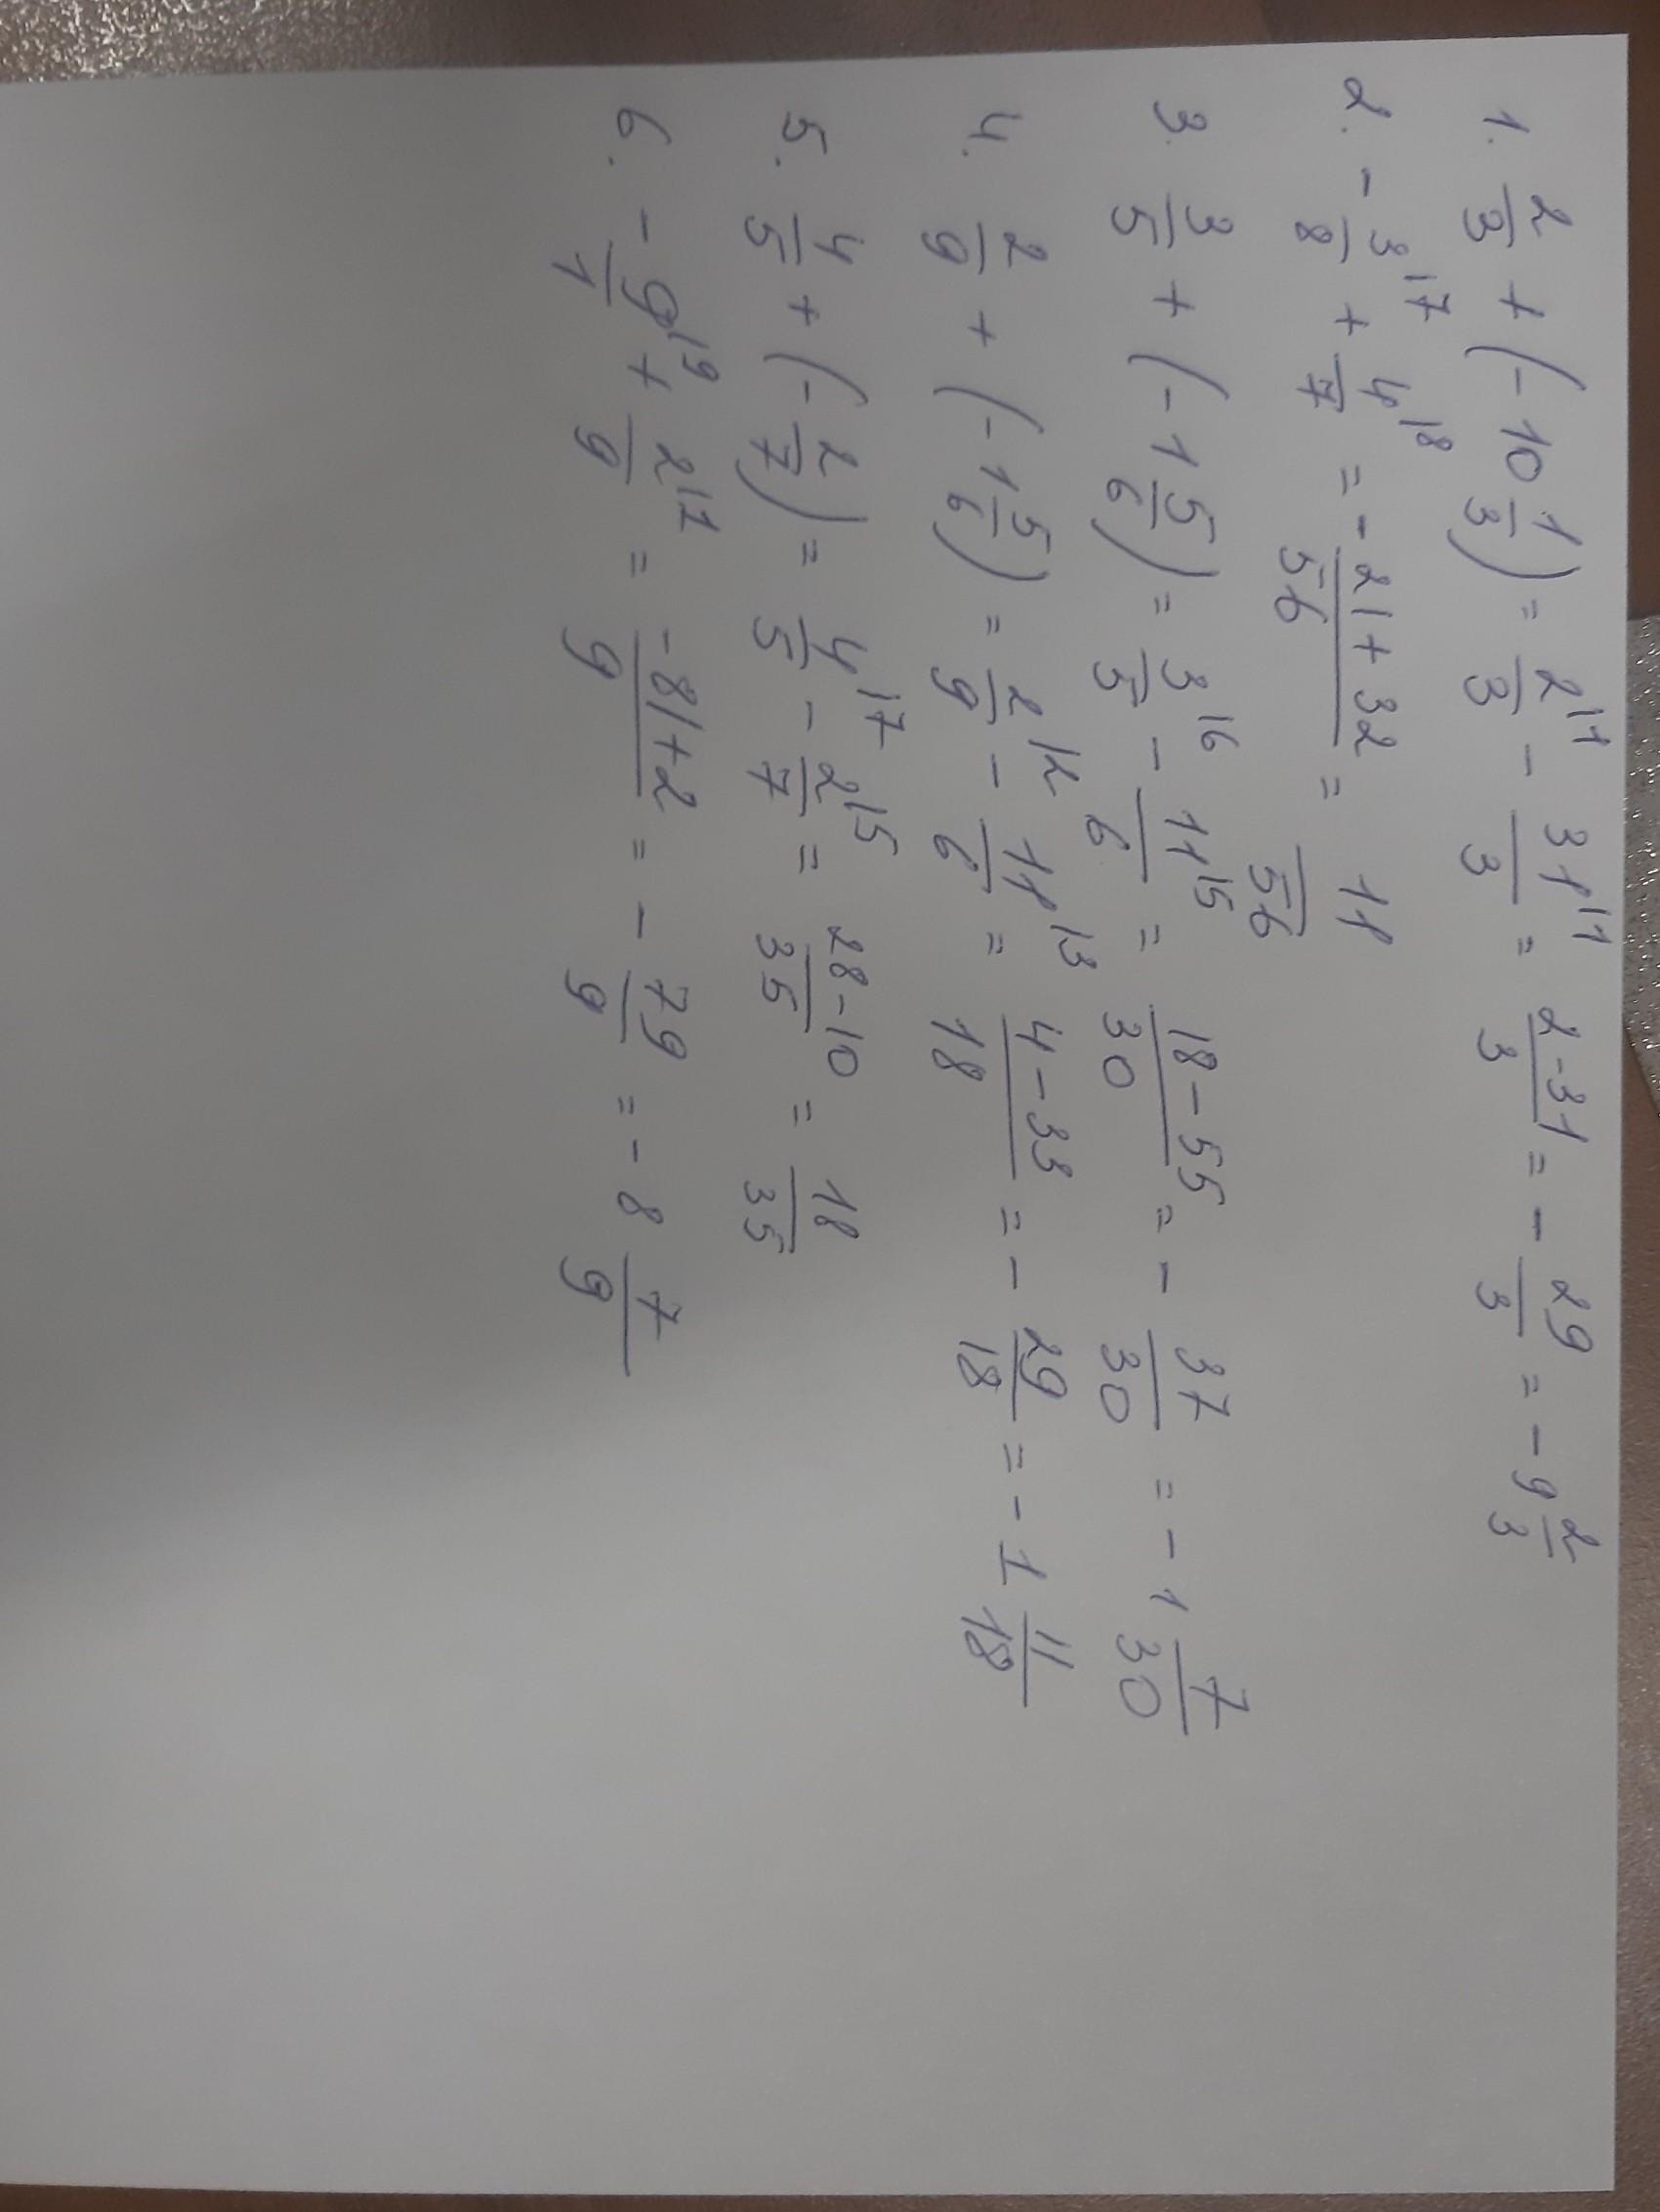 1. 2/3 + (-10 1/3) = 2/3 |1 - 31/3 |1 = 2-31/3 = - 29/3 = - 9 2/3
2. - 3/8 |7 + 4/7 |8 = - 21+32/56 = 11/56
3. 3/5 + (-1 5/6) = 3/5 |6 - 11/6 |5 = 18-55/30 = - 37/30 = - 1 7/30
4. 2/9 + (-1 5/6) = 2/9 |2 - 11/6 |3 = 4-33/18 = - 29/18 = - 1 11/18
5. 4/5 + (- 2/7) = 4/5 |7 - 2/7 |5 = 28-10/35 = 18/35
6. - 9/1 |9 + 2/9 |1 = -81+2/9 = - 79/9 = - 8 7/9